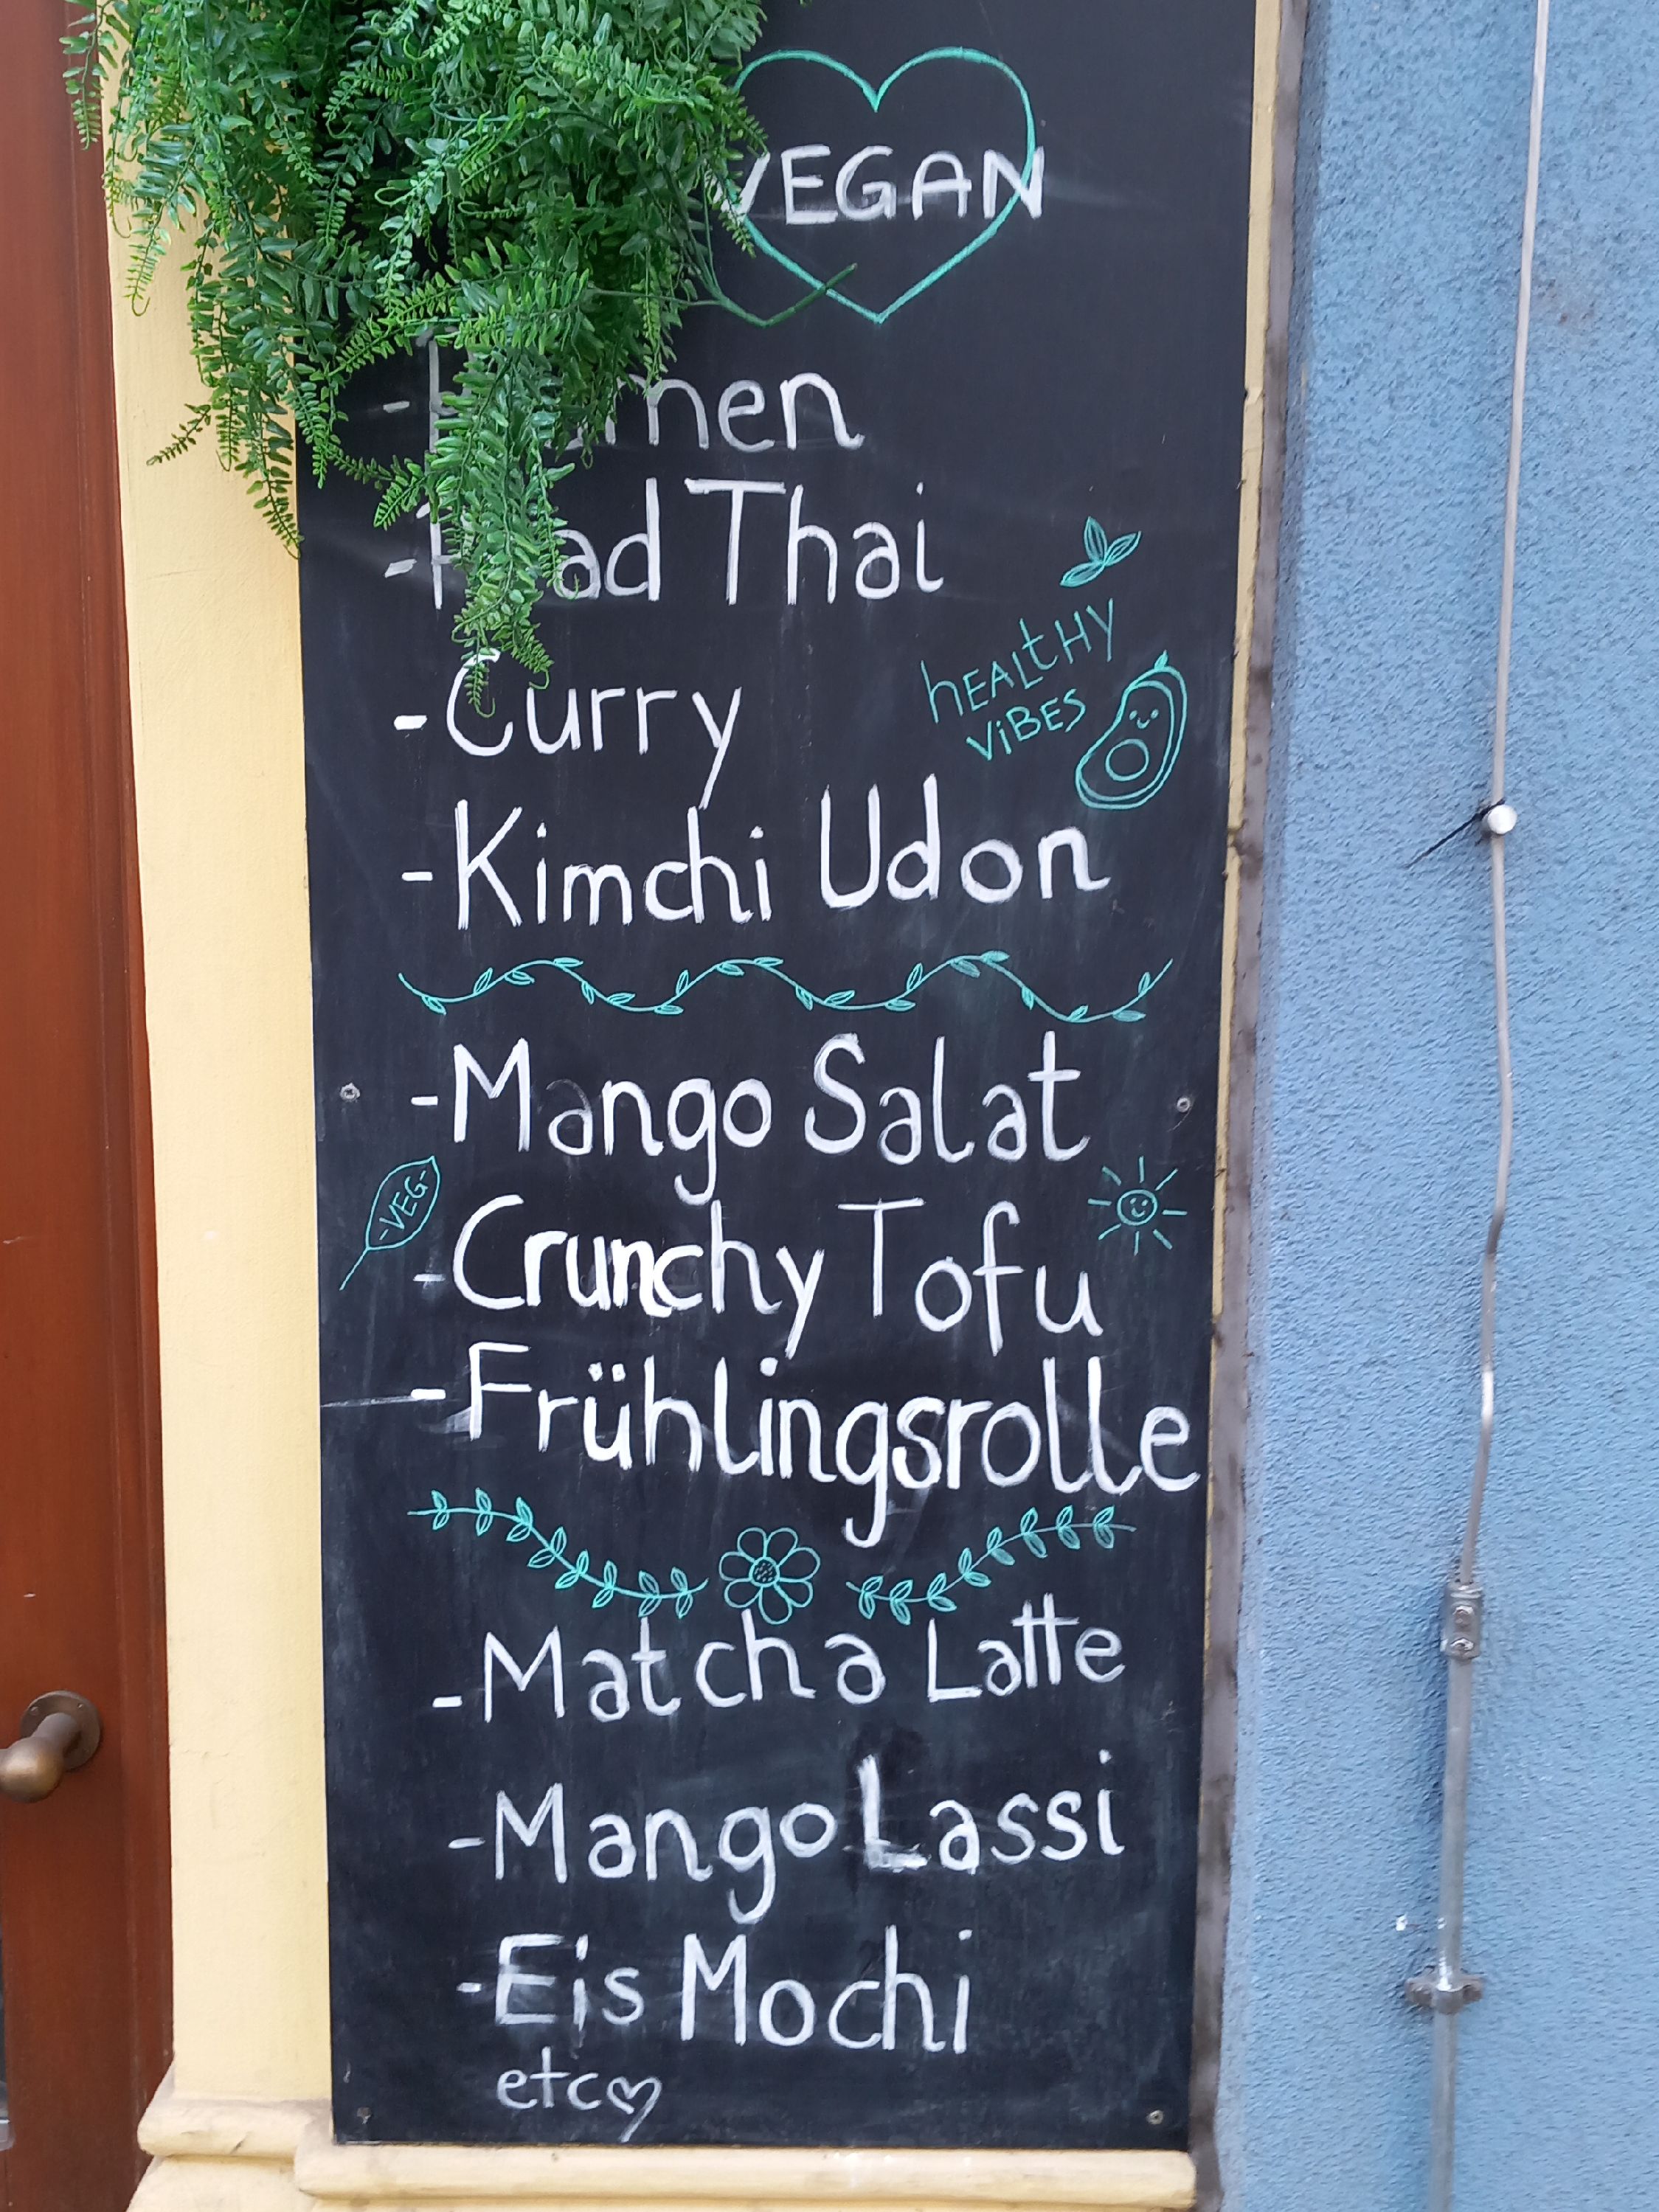 VEGAN
- Ramen
- Pad Thai
- Curry
HEALTHY
VIBES
- Kimchi Udon
- Mango Salat
-VEG-
- Crunchy Tofu
- Frühlingsrolle
- Matcha Latte
- Mango Lassi
- Eis Mochi
etc